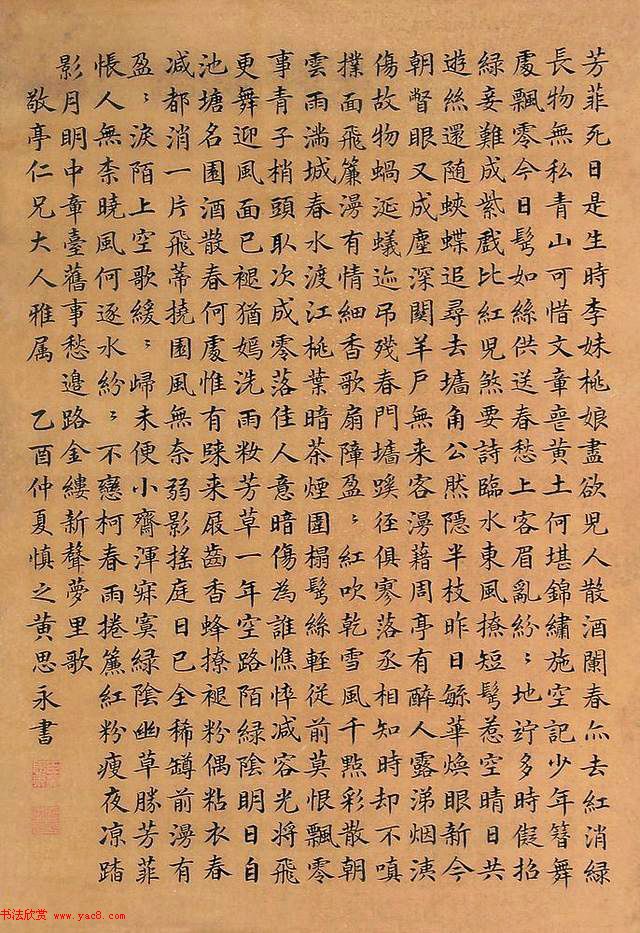 芳菲死日是生時李妹桃娘盡欲兒人散酒闌春亦去紅消綠
長物無私青山可惜文章喪黃土何堪錦繡施空記少年簪舞
處飄零今日鬂如絲供送春愁上客眉亂紛〻地竚多時假招
綠妾難成紫戲比紅兒煞要詩臨水東風撩短鬂惹空晴日共
遊絲還随蛺蝶追尋去墻角公然隱半枝昨日緐華煥眼新今
朝瞥眼又成塵深閨羊戶無来客漫藉周亭有醉人露涕烟洟
傷故物蝸涎蟻迹吊殘春門墻蹊徑俱寥落丞相知時却不嗔
撲面飛簾漫有情細香歌扇障盈〻紅吹乾雪風千點彩散朝
雲雨滿城春水渡江桃葉暗茶煙圍榻鬂絲軽従前莫恨飄零
事青子梢頭取次成零落佳人意暗傷為誰憔悴减容光將飛
更舞迎風面已褪猶嫣洗雨妝芳草一年空路陌綠陰明日自
池塘名園酒散春何處惟有来屐齒香蜂撩褪粉偶粘衣春
减都消一片飛蒂撓園風無奈弱影搖庭日已全稀罇前漫有
盈〻淚陌上空歌緩〻歸未便小齋渾寂寞綠陰幽草勝芳菲
悵人無柰曉風何逐水紛〻不戀柯春雨捲簾紅粉瘦夜凉踏
影月明中章臺舊事愁邊路金縷新聲夢里歌
敬亭仁兄大人雅属 乙酉仲夏慎之黃思永書
书法欣赏 www.yac8.com